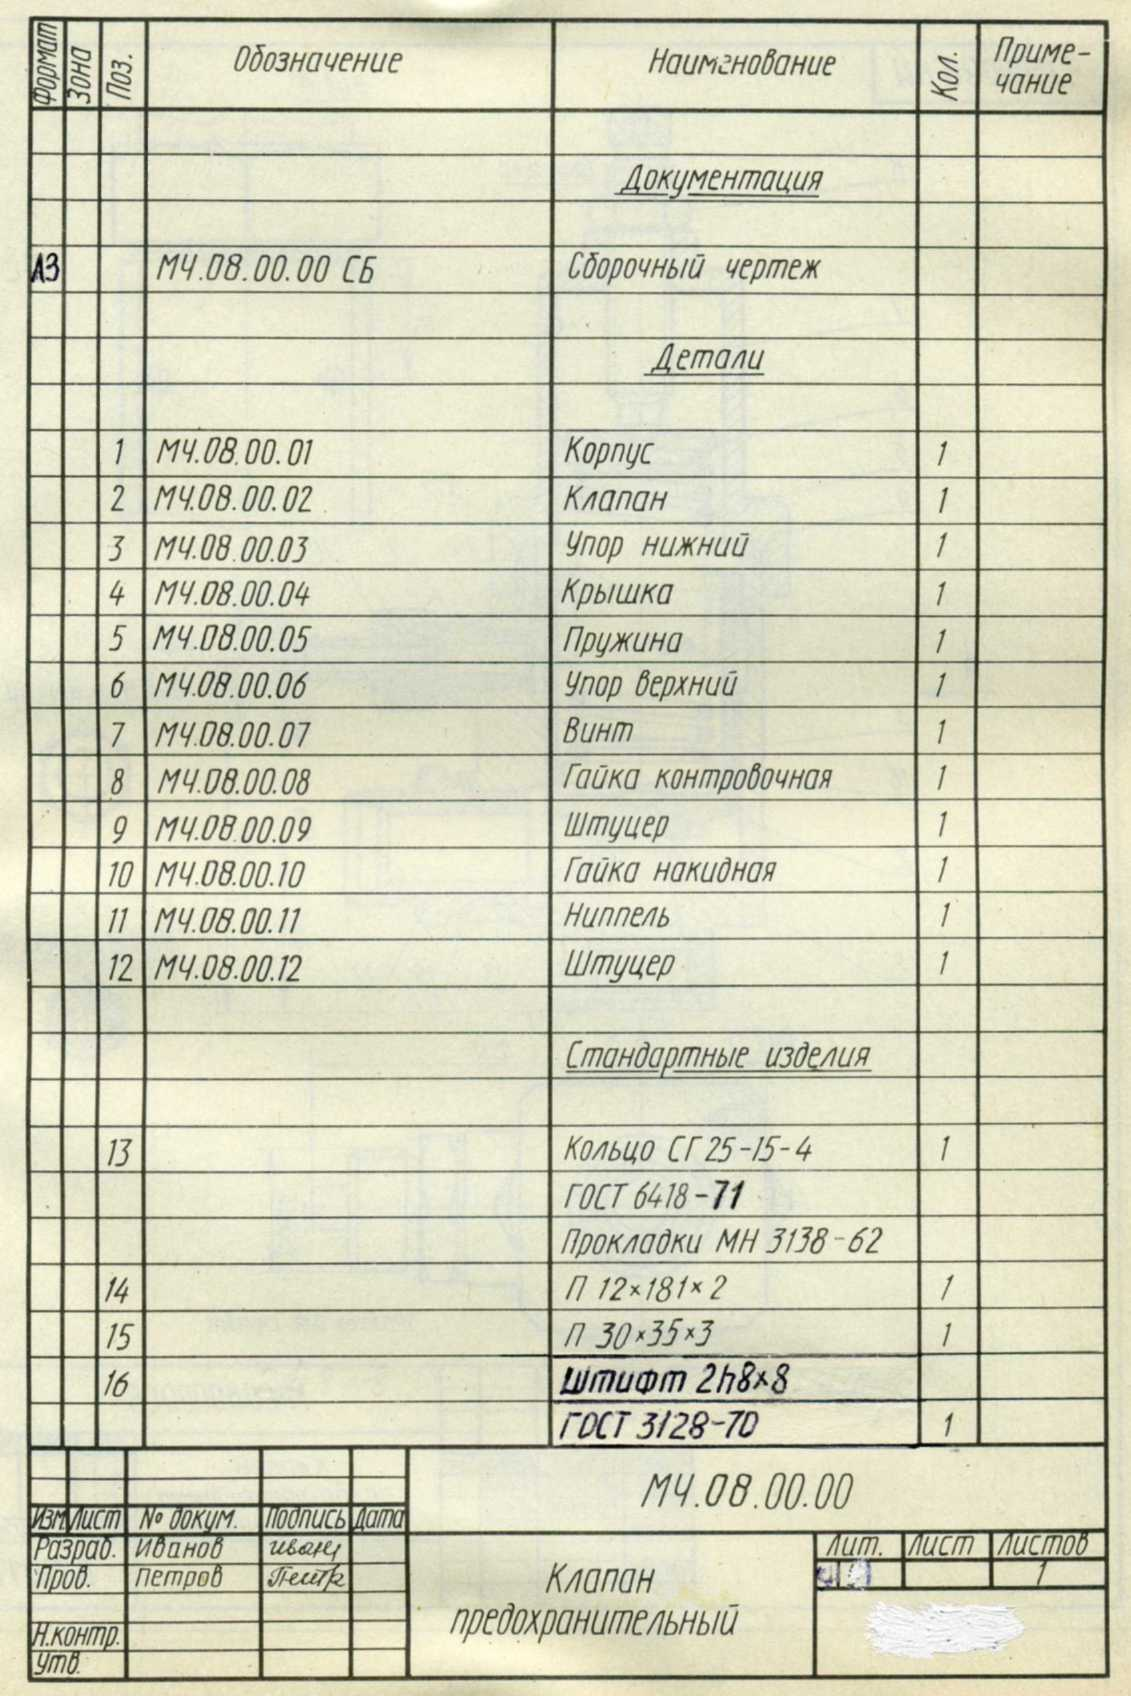 Формат Зона Поз. Обозначение Наименование Кол. Приме-
чание
Документация
А3 МЧ.08.00.00 СБ Сборочный чертеж
Детали
1 МЧ.08.00.01 Корпус 1
2 МЧ.08.00.02 Клапан 1
3 МЧ.08.00.03 Упор нижний 1
4 МЧ.08.00.04 Крышка 1
5 МЧ.08.00.05 Пружина 1
6 МЧ.08.00.06 Упор верхний 1
7 МЧ.08.00.07 Винт 1
8 МЧ.08.00.08 Гайка контровочная 1
9 МЧ.08.00.09 Штуцер 1
10 МЧ.08.00.10 Гайка накидная 1
11 МЧ.08.00.11 Ниппель 1
12 МЧ.08.00.12 Штуцер 1
Стандартные изделия
13 Кольцо СГ 25-15-4 1
ГОСТ 6418-71
Прокладки МН 3138-62
14 П 12×181×2 1
15 П 30×35×3 1
16 Штифт 2h8×8
ГОСТ 3128-70 1
МЧ.08.00.00
Изм Лист № докум. Подпись Дата
Разраб. Иванов
Пров. Петров
Н.контр.
Утв.
Клапан
предохранительный
Лит. Лист Листов
1